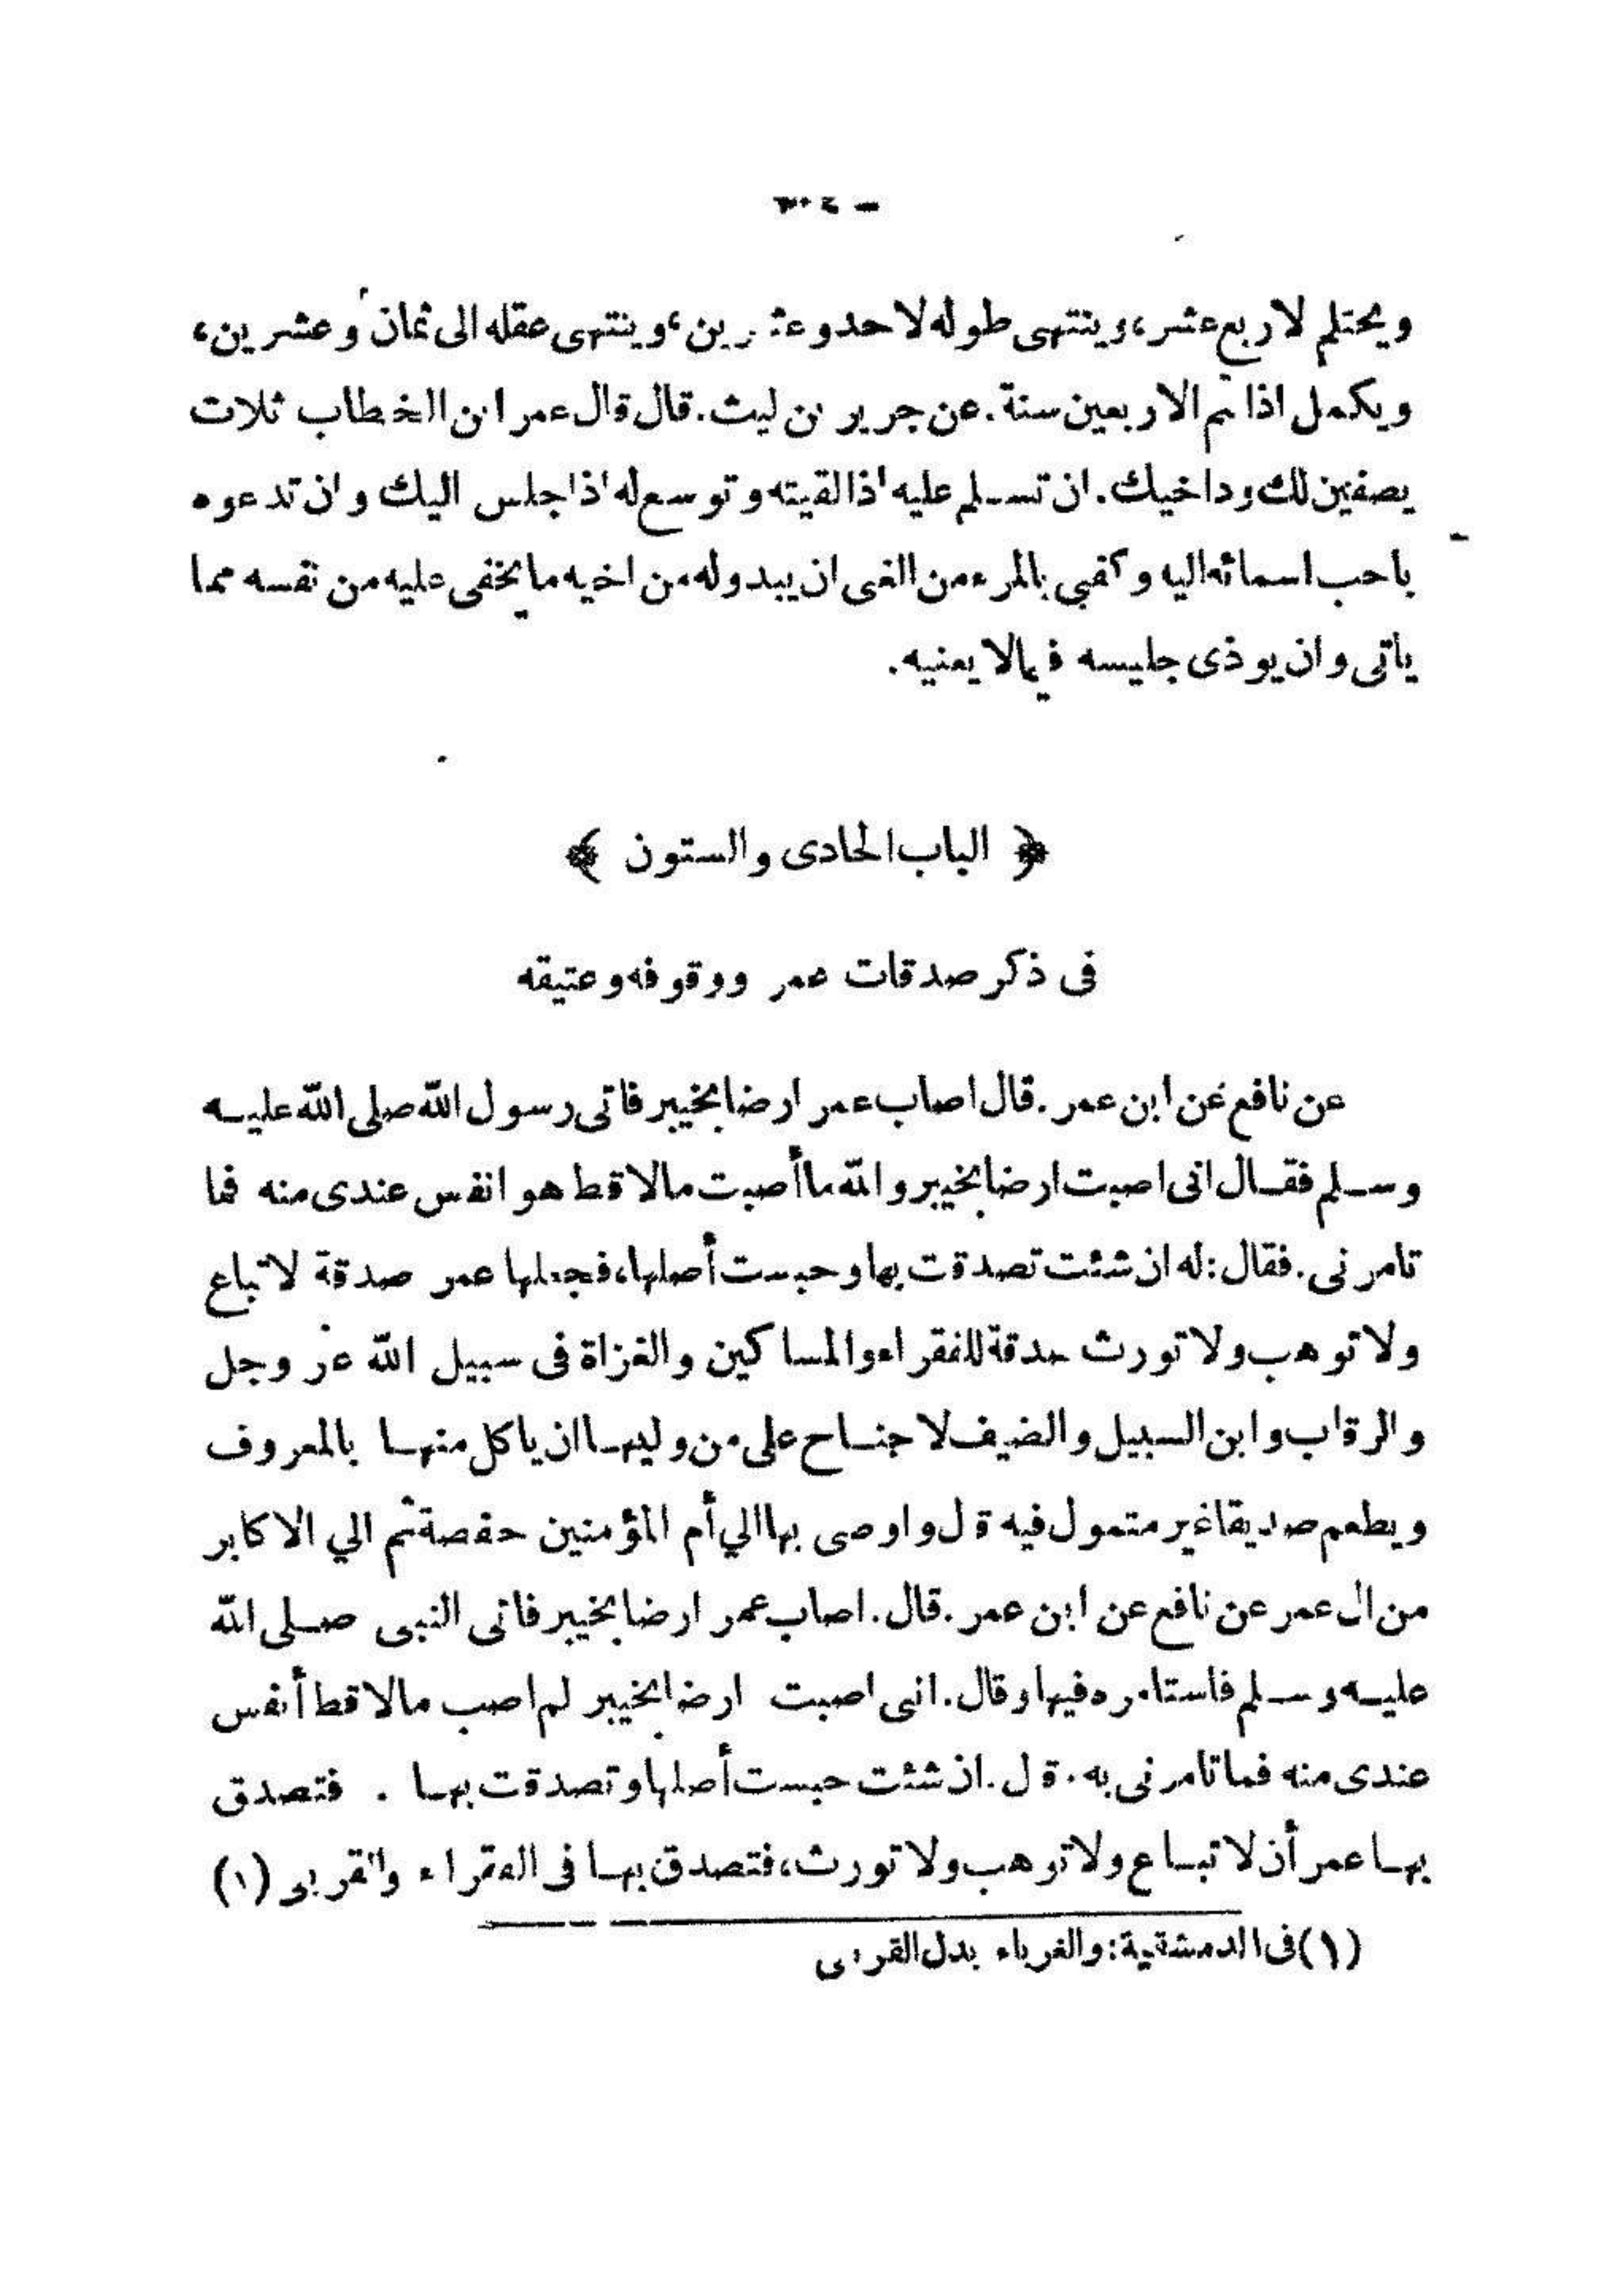 ويحتلم لاربع عشر، وينتهى طوله لاحد وعشرين، وينتهى عقله الى ثمان وعشرين،
ويكمل اذا تم الاربعين سنة. عن جرير بن ليث. قال قال عمر ابن الخطاب ثلاث
يصفين لك وداخيك. ان تسلم عليه اذا لقيته وتوسع له اذا جلس اليك وان تدعوه
باحب اسمائه اليه وكفى بالمرء من الغى ان يبدو له من اخيه ما يخفى عليه من نفسه مما
ياتى وان يوذى جليسه فيما لا يعنيه.
﴿ الباب الحادى والستون ﴾
فى ذكر صدقات عمر ووقوفه وعتيقه
عن نافع عن ابن عمر. قال اصاب عمر ارضا بخيبر فاتى رسول الله صلى الله عليه
وسلم فقال انى اصبت ارضا بخيبر والله ما أصبت مالا قط هو انفس عندى منه فما
تامرنى. فقال: له ان شئت تصدقت بها وحبست أصلها، فجعلها عمر صدقة لا تباع
ولا توهب ولا تورث صدقة للفقراء والمساكين والغزاة فى سبيل الله عز وجل
والرقاب وابن السبيل والضيف لا جناح على من وليها ان ياكل منها بالمعروف
ويطعم صديقا غير متمول فيه قال واوصى بها الي أم المؤمنين حفصة ثم الي الاكابر
من ال عمر عن نافع عن ابن عمر. قال. اصاب عمر ارضا بخيبر فاتى النبى صلى الله
عليه وسلم فاستامره فيها وقال. انى اصبت ارضا بخيبر لم اصب مالا قط أنفس
عندى منه فما تامرنى به. قال. ان شئت حبست أصلها وتصدقت بها . فتصدق
بها عمر أن لا تباع ولا توهب ولا تورث، فتصدق بها فى الفقراء والقربى (١)
(١) فى الدمشقية: والغرباء بدل القربى